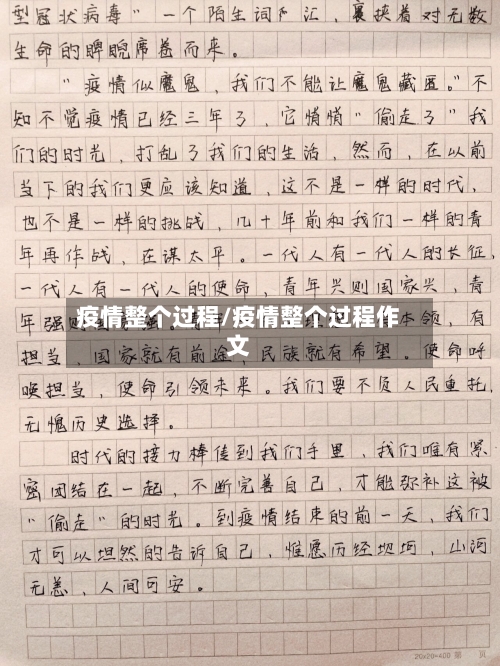 型冠状病毒”一个陌生词汇，裹挟着对无数
生命的睥睨席卷而来。
“疫情似魔鬼，我们不能让魔鬼藏匿。”不
知不觉疫情已经三年了，它悄悄“偷走了”我
们的时光，打乱了我们的生活，然而，在以前
当下的我们更应该知道，这不是一样的时代，
也不是一样的挑战，几十年前和我们一样的青
年再作战，在谋太平。一代人有一代人的长征，
一代人有一代人的使命，青年兴则国家兴，青
年强则
疫情整个过程/疫情整个过程作
文
本领，有
担当，国家就有前途，民族就有希望。使命呼
唤担当，使命引领未来。我们要不负人民重托，
无愧历史选择。
时代的接力棒传到我们手里，我们唯有紧
密团结在一起，不断完善自己，才能弥补这被
“偷走”的时光。到疫情结束的前一天，我们
才可以坦然的告诉自己，惟愿历经坎坷，山河
无恙，人间可安。
20×20=400 第 页